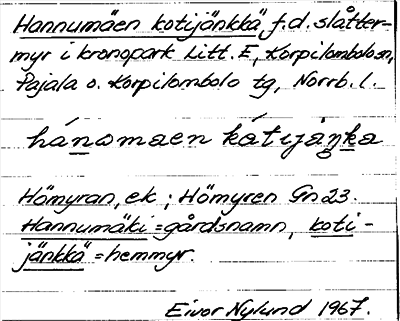 Hannumäen kotijänkkä, f.d. slåtter-
myr i kronopark Litt. E, Korpilombolo sn,
Pajala o. Korpilombolo tg, Norrb. l.
hánomaen kátıjäŋka
Hömyran, ek ; Hömyren Gn 23.
Hannumäki = gårdsnamn, koti-
jänkkä = hemmyr.
Eivor Nylund 1967.